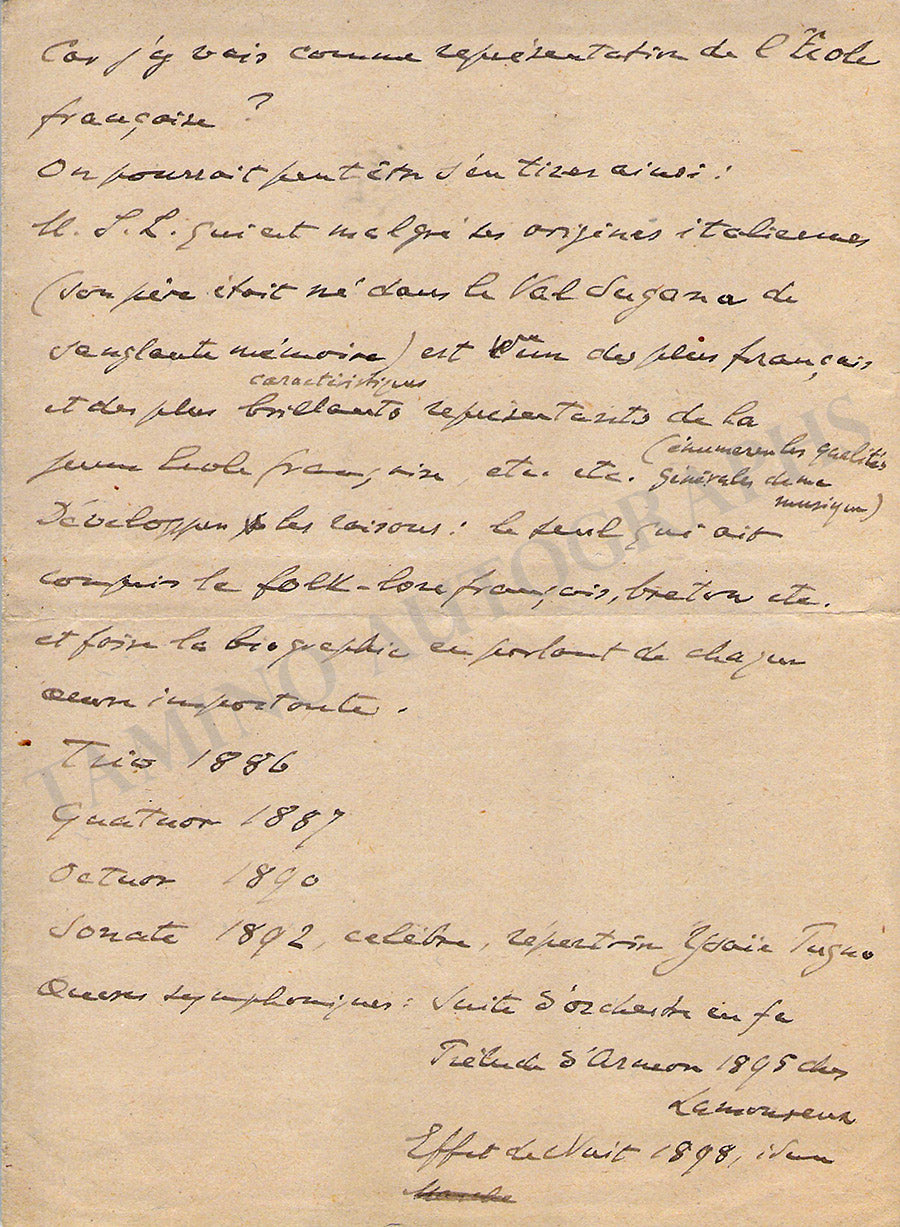 Car j'y vais comme représentation de l'École
française ?
On pourrait peut être s'en tirer ainsi :
M. S. L. qui est malgré ses origines italiennes
(son père était né dans le Val Sugana de
sanglante mémoire) est l'un des plus français
caractéristiques
et des plus brillants représentants de la
jeune École française, etc. etc. (énumérer les qualités
générales de ma
musique)
Développer les raisons : le seul qui ait
compris le folk-lore français, breton etc.
et faire la biographie en parlant de chaque
œuvre importante.
Trio 1886
Quatuor 1887
Octuor 1890
Sonate 1892, célèbre, répertoire Ysaÿe Pugno
Œuvres symphoniques : Suite d'orchestre en fa
Prélude d'Armor 1895 chez
Lamoureux
Effet de Nuit 1898, idem
Marche
TAMINO AUTOGRAPHS